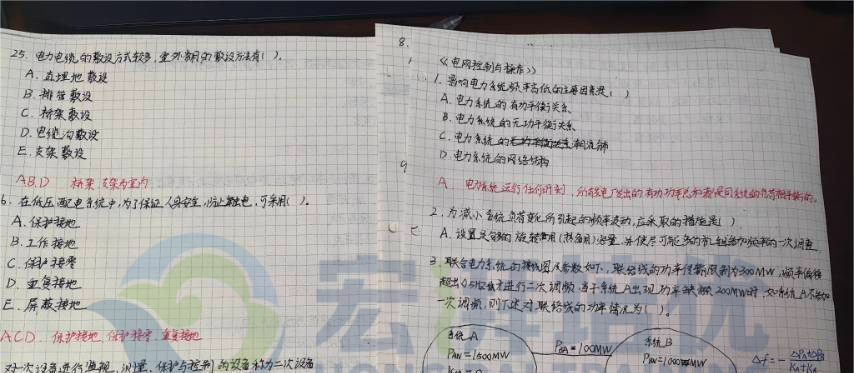 25. 电力电缆的敷设方式较多,室外常用的敷设方法有( )。
A. 直埋地敷设
B. 排管敷设
C. 桥架敷设
D. 电缆沟敷设
E. 支架敷设
A.B.D 桥架、支架为室内
6. 在低压配电系统中,为了保证人身安全,防止触电,可采用( )。
A. 保护接地
B. 工作接地
C. 保护接零
D. 重复接地
E. 屏蔽接地
ACD. 保护接地 保护接零 重复接地
对一次设备进行监视、测量、保护与控制的设备称为二次设备
8.
9
《电网控制与操作》
1. 影响电力系统频率高低的主要因素是( )
A. 电力系统的有功平衡关系
B. 电力系统的无功平衡关系
C. 电力系统的潮流分布
D. 电力系统的网络结构
A 电力系统运行任何时刻,所有发电厂发出的有功功率总和
2. 为减小系统负荷变化所引起的频率波动,应采取的措施是( )
A. 设置足够的旋转备用(热备用)容量,并使尽可能多的机组参加频率的一次调整
3. 联合电力系统的接线图及参数如下,联络线的功率传输限制为300MW,频率偏移
超出0.5Hz才进行二次调频,当子系统A出现功率缺额200MW时,如系统A不参加
一次调频,则下述对联络线的功率情况为( )。
系统A
PAN=1500MW
PBA=100MW
系统B
PBN=1000MW
Δf=-
宏
优